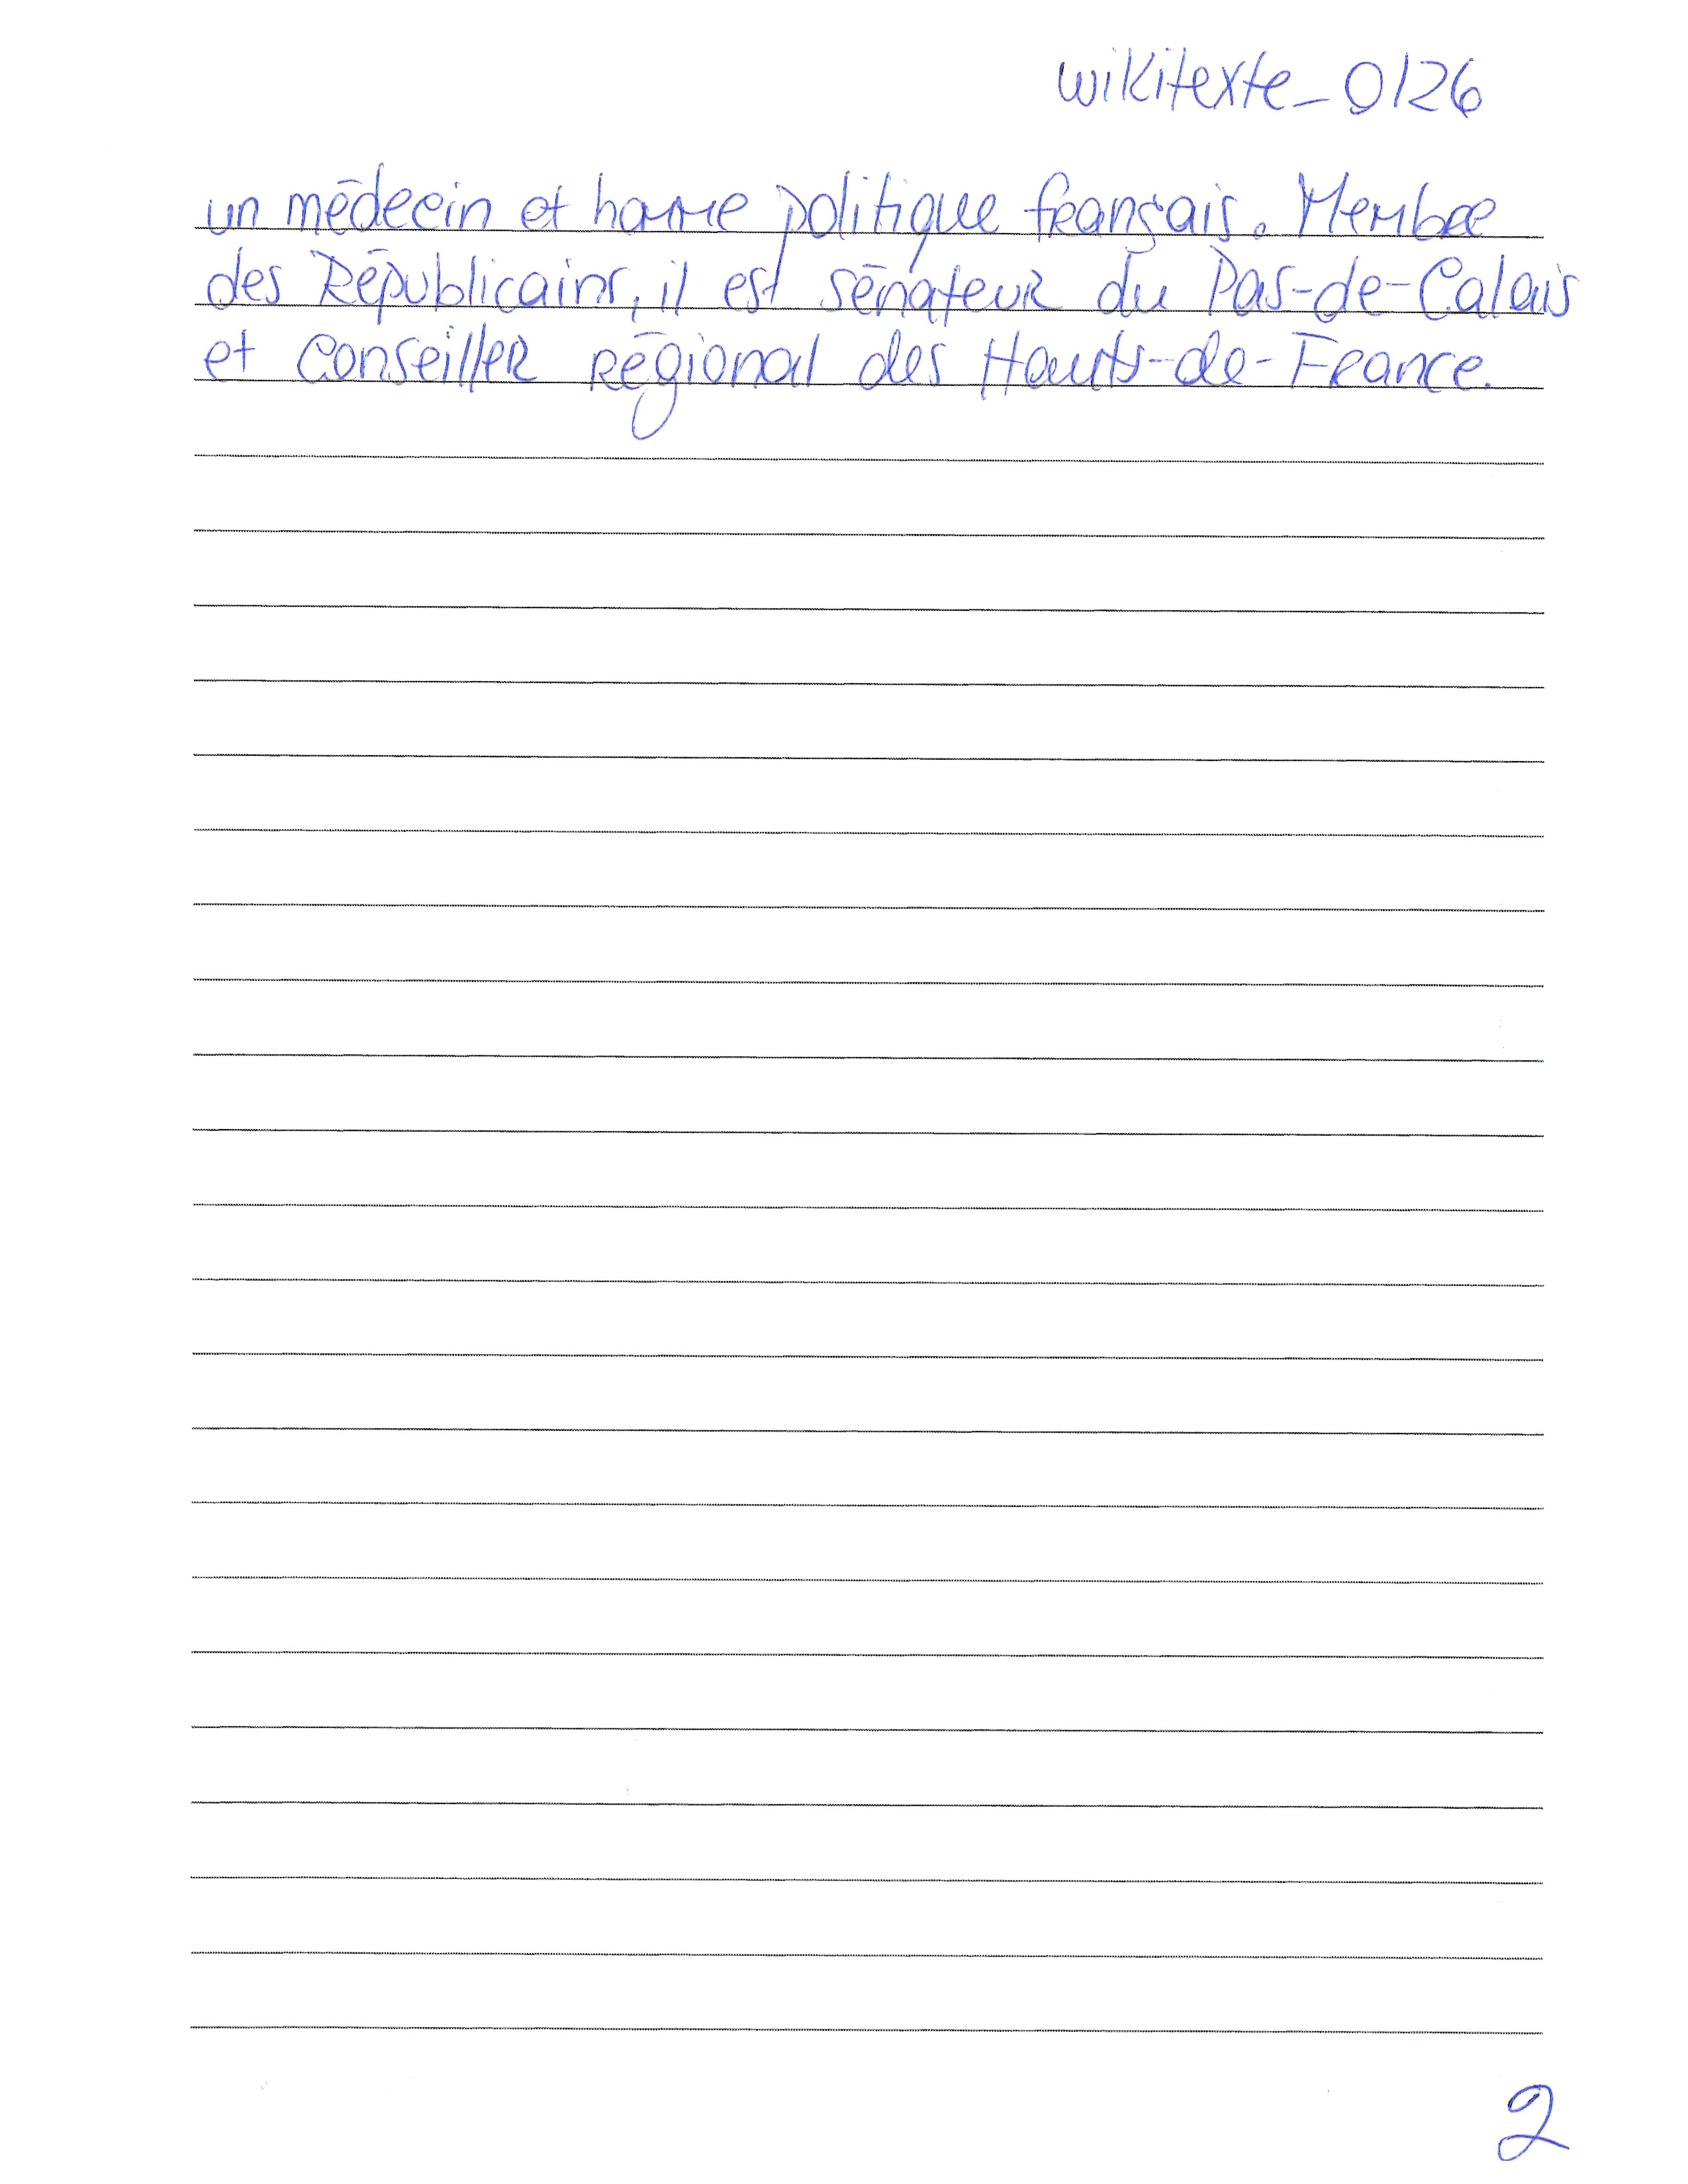 wikitexte_0126
un médecin et homme politique français. Membre
des Républicains, il est sénateur du Pas-de-Calais
et conseiller régional des Hauts-de-France.
2